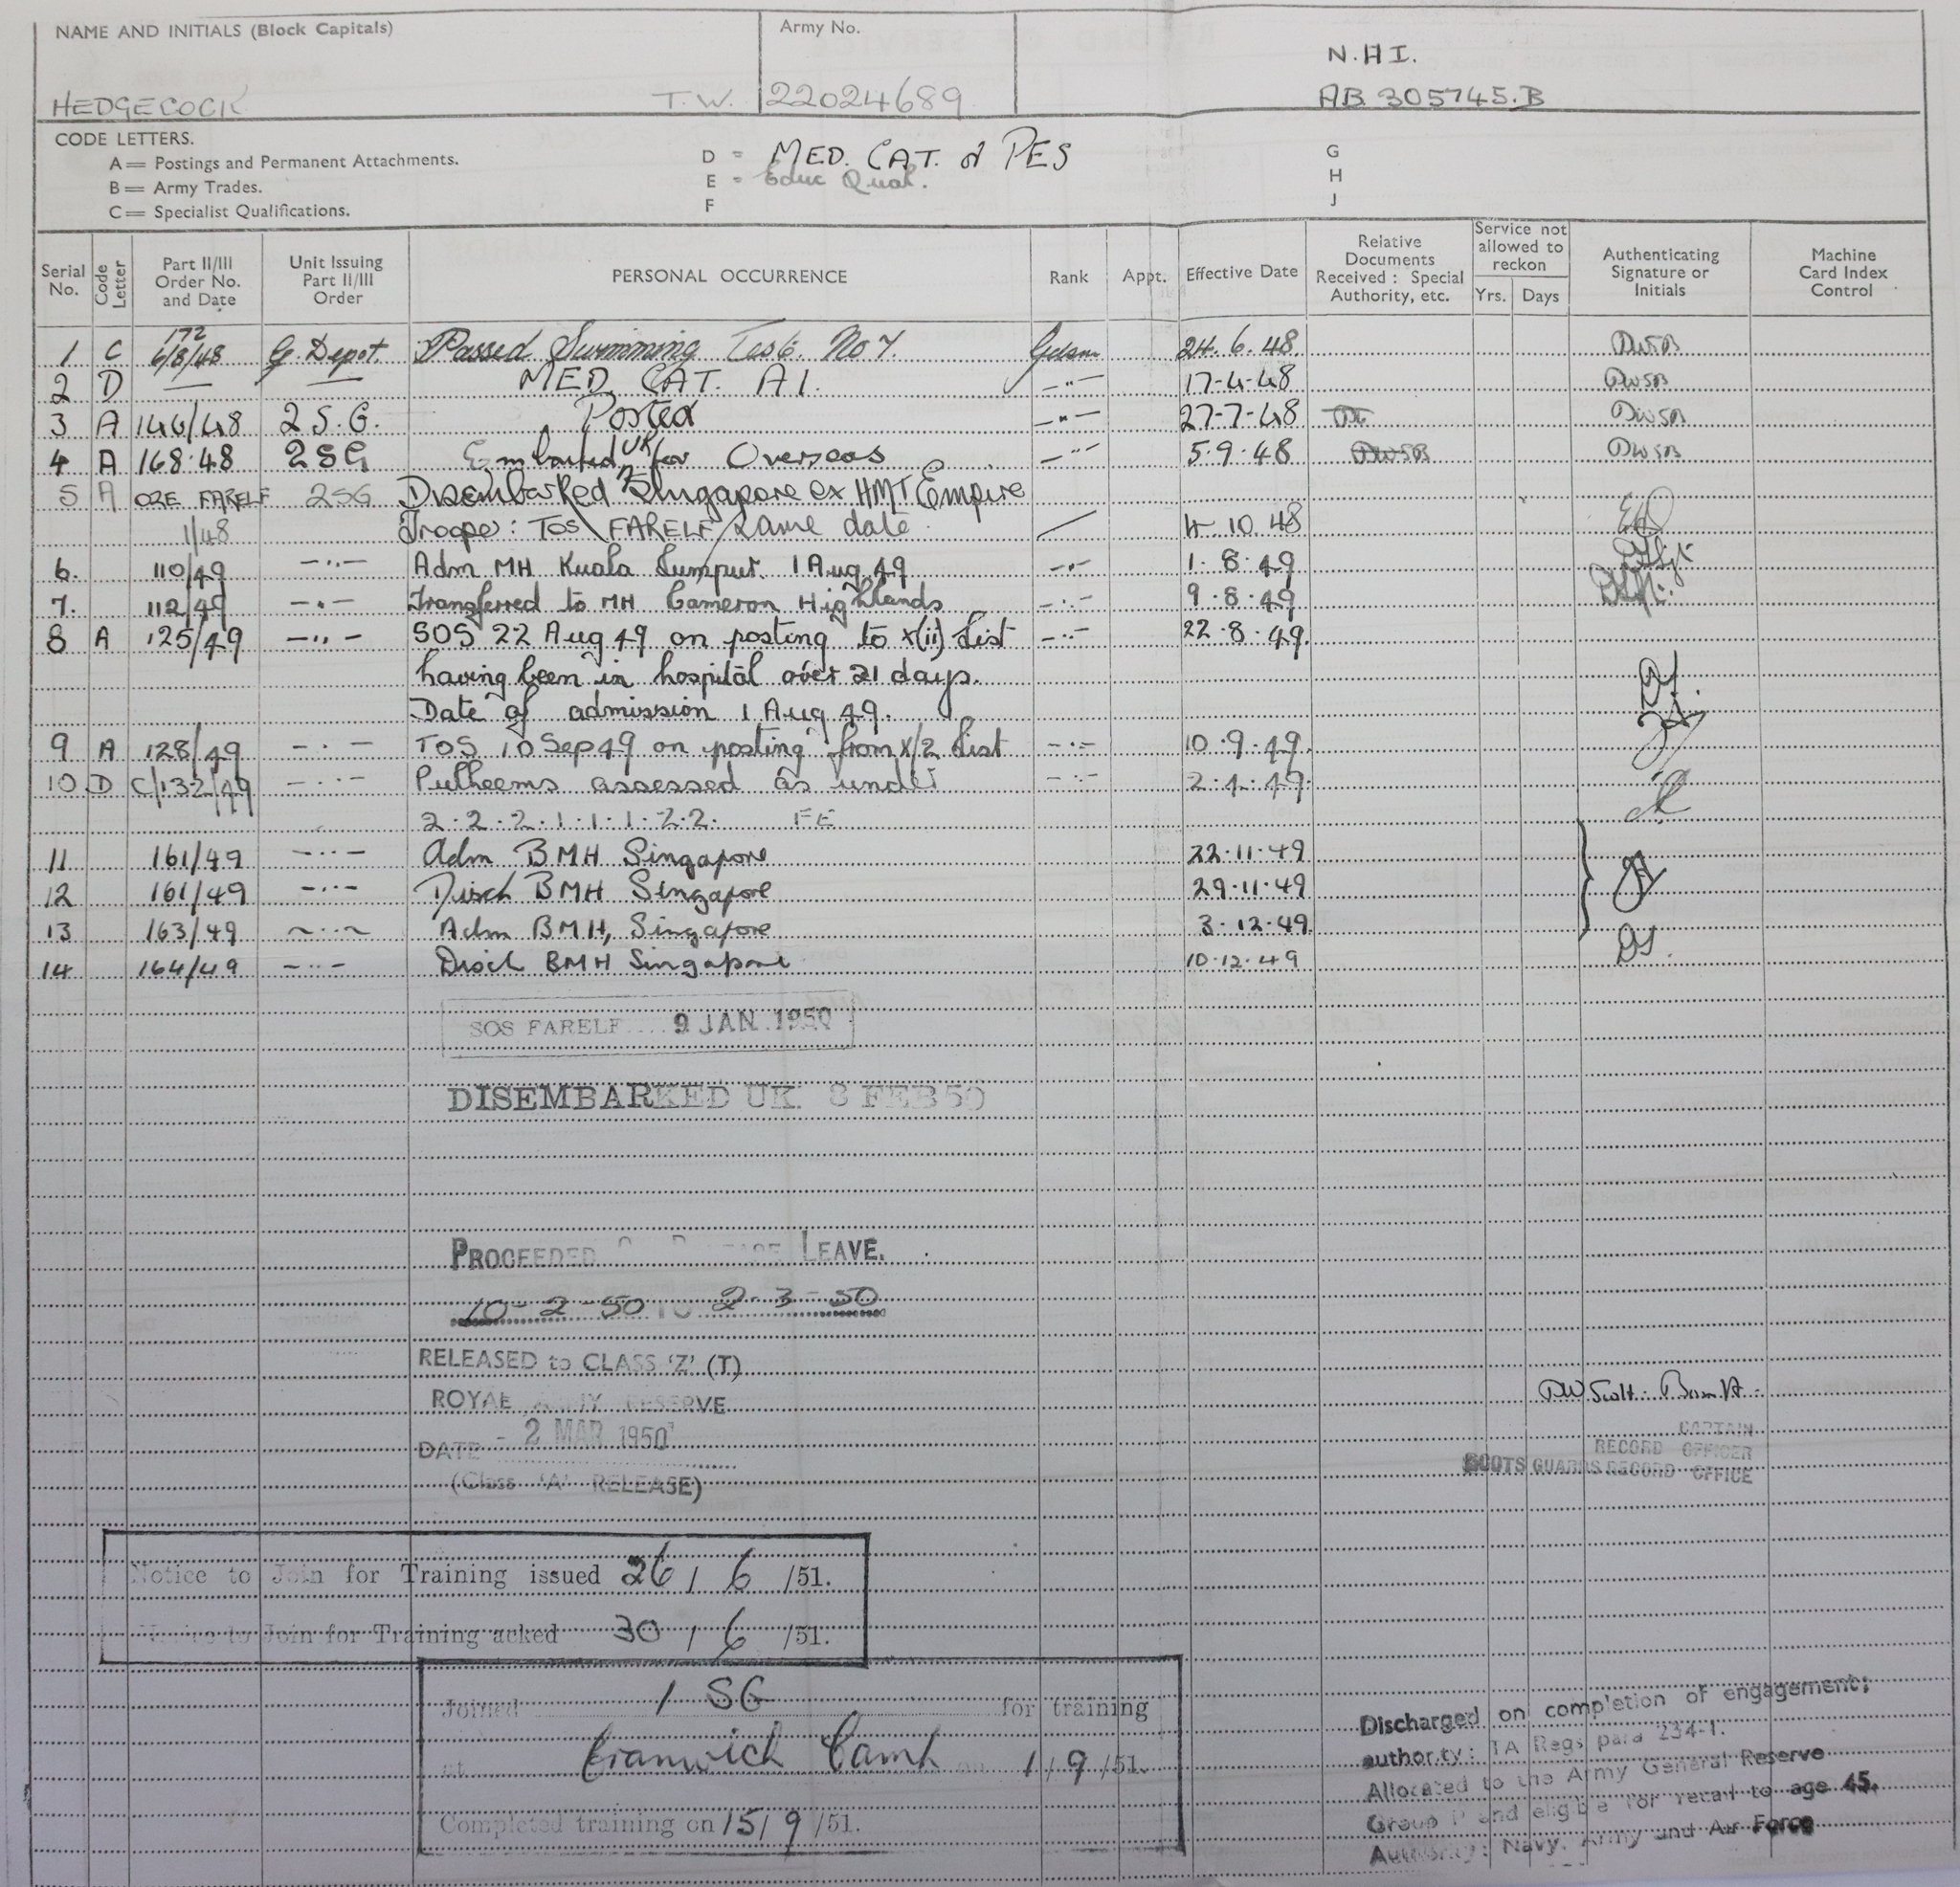 NAME AND INITIALS (Block Capitals) Army No.
N.H I.
HEDGECOCK T.W. 22024689 AB 305745.B
CODE LETTERS.
A = Postings and Permanent Attachments. D = MED. CAT. of PES G
B = Army Trades. E = Educ Qual. H
C = Specialist Qualifications. F J
Serial No. Code Letter Part II/III Order No. and Date Unit Issuing Part II/III Order PERSONAL OCCURRENCE Rank Appt. Effective Date Relative Documents Received : Special Authority, etc. Service not allowed to reckon Yrs. Days Authenticating Signature or Initials Machine Card Index Control
1 C 172 6/8/48 G. Depot Passed Swimming Test No 1. Gdsm 24.6.48. DWSB
2 D — — MED. CAT. A1. —"— 17-4-48 DWSB
3 A 146/48 2 S.G. Posted —"— 27-7-48 DWSB
4 A 168.48 2SG Embarked UK for Overseas —"— 5.9.48 DWSB DWSB
5 A O2E FARELF 2SG Disembarked Singapore ex HMT Empire
1/48 Trooper: TOS FARELF same date 4.10.48
6. 110/49 —"— Adm MH Kuala Lumpur. 1 Aug 49 —"— 1.8.49
7. 112/49 —"— Transferred to MH Cameron Highlands —"— 9.8.49
8 A 125/49 —"— SOS 22 Aug 49 on posting to x(ii) List —"— 22.8.49.
having been in hospital over 21 days.
Date of admission 1 Aug 49.
9 A 128/49 —"— TOS 10 Sep 49 on posting from x/2 List —"— 10.9.49.
10 D C/132/49 —"— Pulheems assessed as under —"— 2.4.49.
2.2.2.1.1.1.2.2. FE
11 161/49 —"— Adm BMH Singapore 22.11.49
12 161/49 —"— Disch BMH Singapore 29.11.49
13 163/49 —"— Adm BMH, Singapore 3.12.49
14 164/49 —"— Disch BMH Singapore 10.12.49
SOS FARELF 9 JAN 1950
DISEMBARKED UK 8 FEB 50
PROCEEDED LEAVE.
10-2-50 TO 2-3-50
RELEASED to CLASS 'Z' (T)
ROYAL ARMY RESERVE
DATE - 2 MAR 1950
(Class 'A' RELEASE)
DW Scott
CAPTAIN
RECORD OFFICER
SCOTS GUARDS RECORD OFFICE
Notice to Join for Training issued 26 / 6 /51.
Notice to Join for Training acked 30 / 6 /51.
Joined 1 SG for training
at Cranwich Camp on 1 / 9 /51.
Completed training on 15/ 9 /51.
Discharged on completion of engagement;
authority: TA Regs para 234-1.
Allocated to the Army General Reserve
Group and eligible for recall to age 45.
Authority: Navy, Army and Air Force